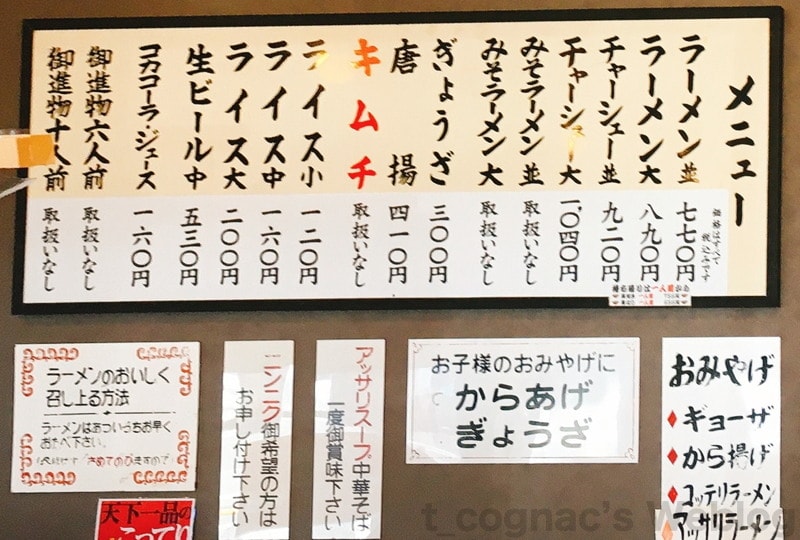 メニュー
価格はすべて
税込みです
ラーメン並 七七〇円
ラーメン大 八九〇円
チャーシュー並 九二〇円
チャーシュー大 一、〇四〇円
みそラーメン並 取扱いなし
みそラーメン大 取扱いなし
ぎょうざ 三〇〇円
唐揚 四一〇円
キムチ 取扱いなし
ライス小 一二〇円
ライス中 一六〇円
ライス大 二〇〇円
生ビール中 五三〇円
コカコーラ・ジュース 一六〇円
御進物六人前 取扱いなし
御進物十人前 取扱いなし
ラーメンのおいしく
召し上る方法
ラーメンはあついうちお早く
おたべ下さい。
ニンニク御希望の方は
お申し付け下さい
アッサリスープ中華そば
一度御賞味下さい
お子様のおみやげに
からあげ
ぎょうざ
おみやげ
ギョーザ
から揚げ
コッテリラーメン
アッサリラーメン
天下一品の
こってり
t_cognac's Weblog